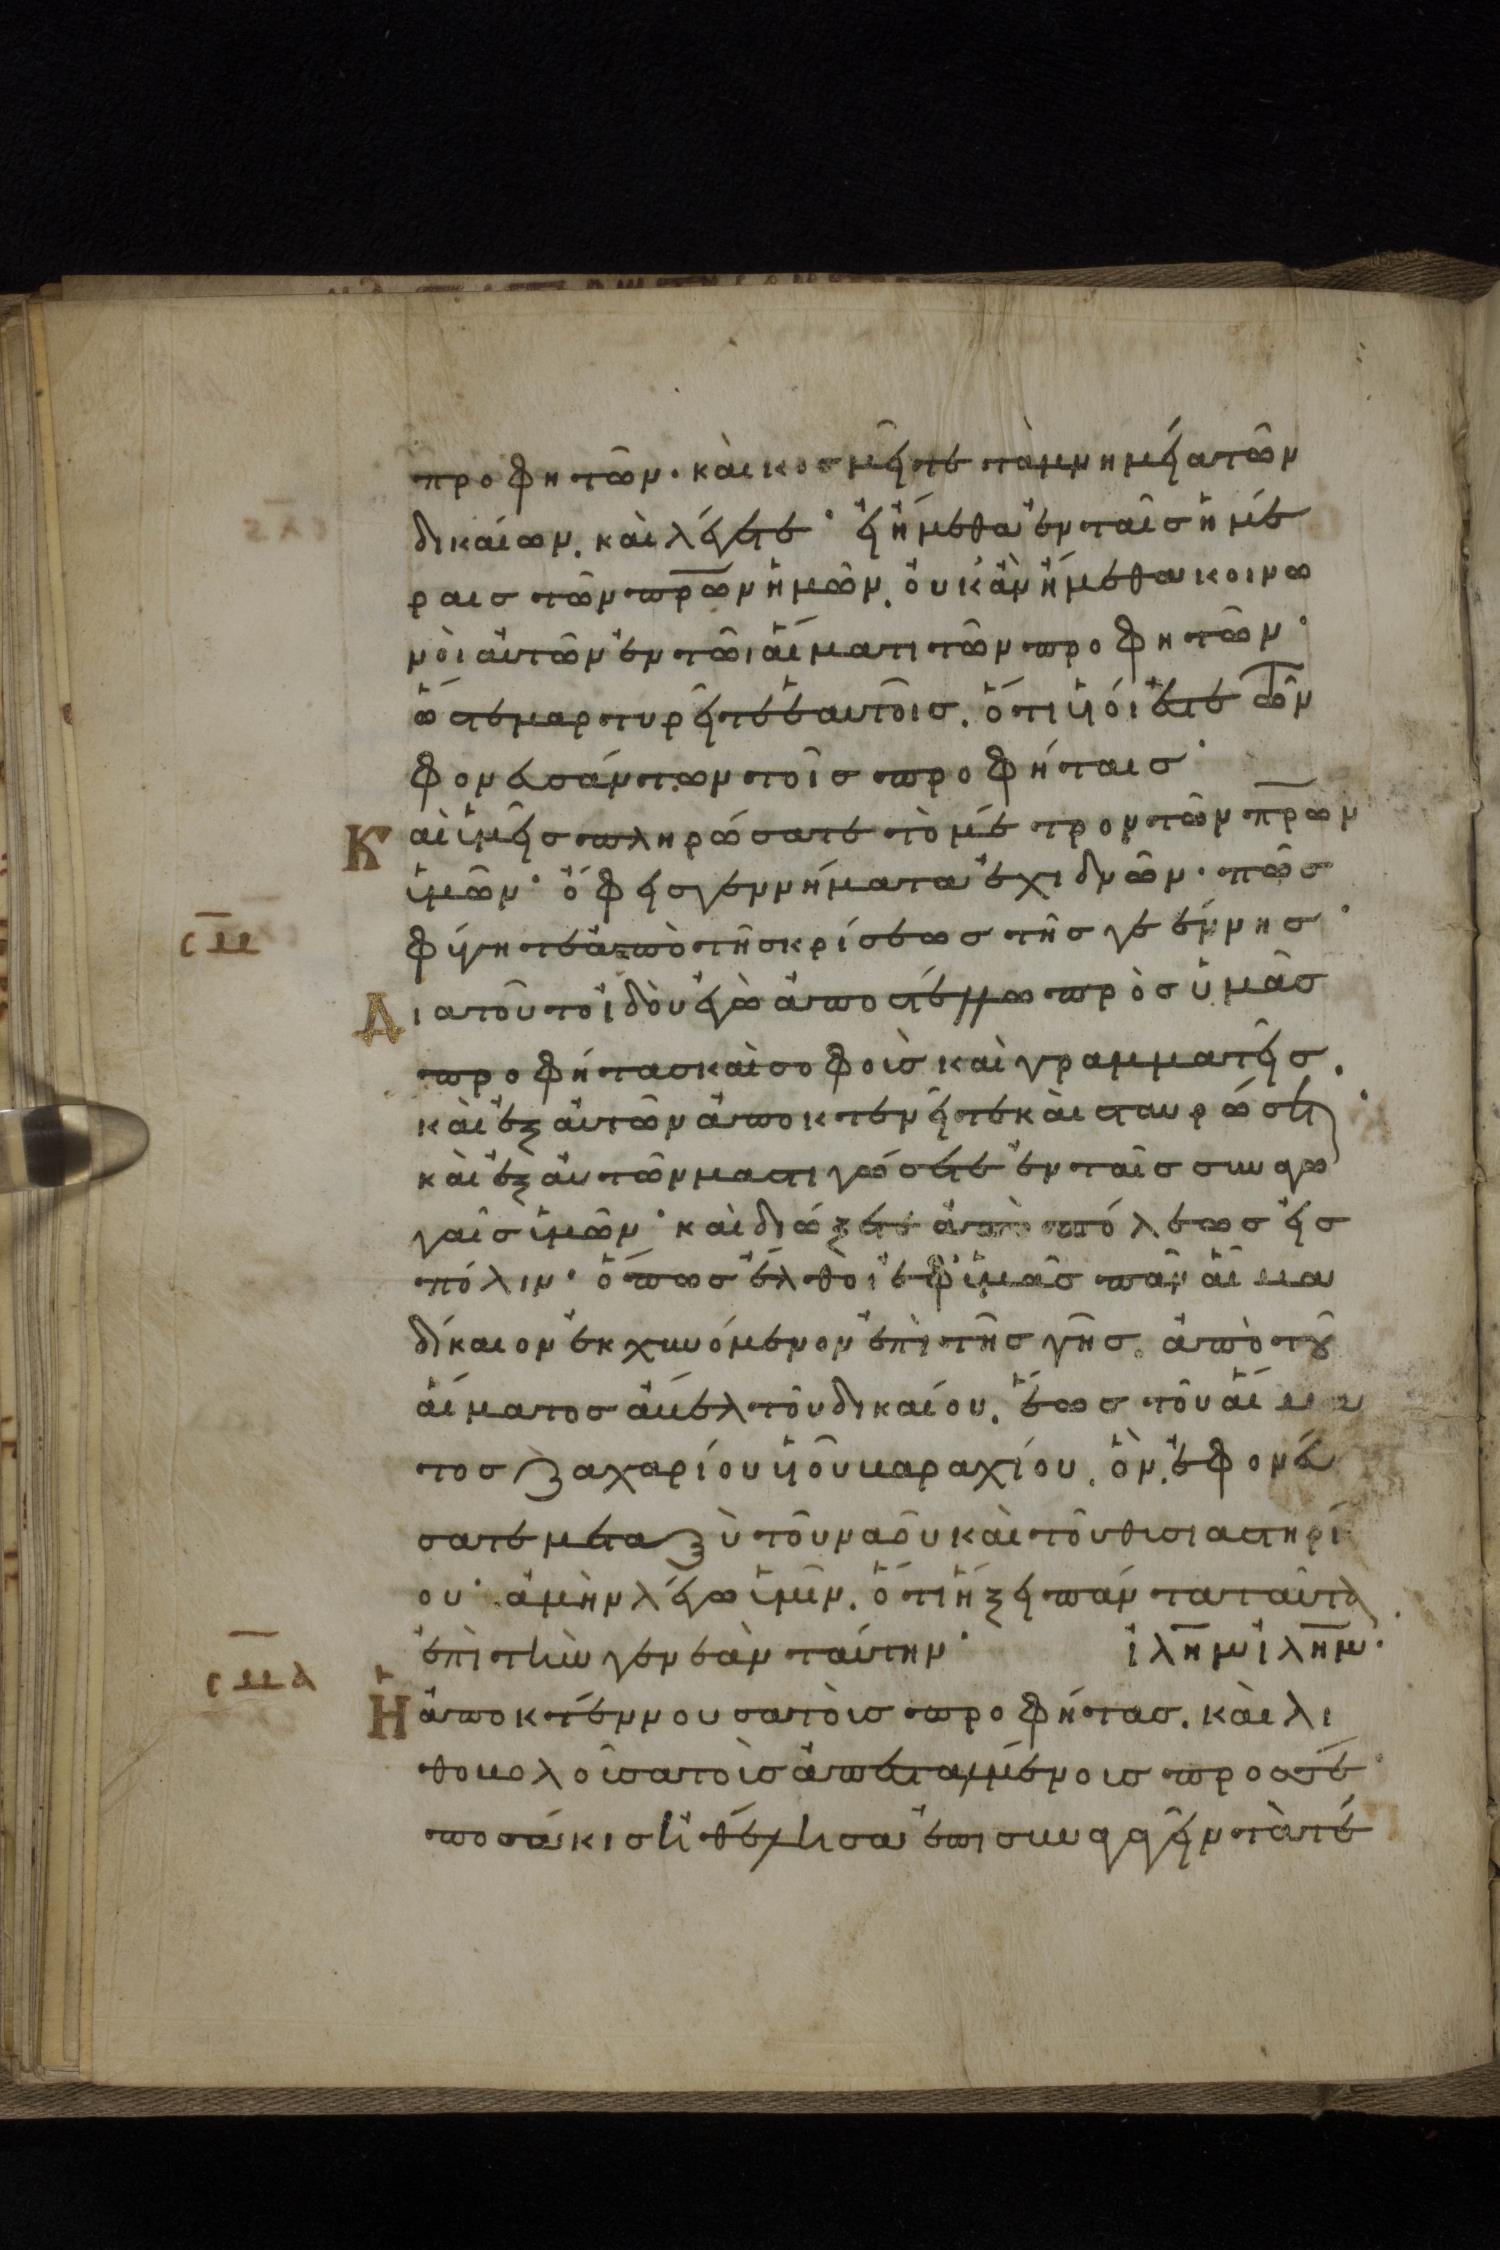 προφητῶν· καὶ κοσμεῖτε τὰ μνημεῖα τῶν
δικαίων. καὶ λέγετε· εἰ ἤμεθα ἐν ταῖς ἡμέ
ραις τῶν πρ̅ων ἡμῶν. οὐκ ἂν ἤμεθα κοινω
νοὶ αὐτῶν ἐν τῶι αἵματι τῶν προφητῶν·
ὥστε μαρτυρεῖτε ἑαυτοῖς. ὅτι υἱοί ἐστε τῶν
φονευσάντων τοὺς προφήτας·
Καὶ ὑμεῖς πληρώσατε τὸ μέτρον τῶν πρ̅ων
ὑμῶν· ὄφεις γεννήματα ἐχιδνῶν· πῶς
σ̅μ̅
φύγητε ἀπὸ τῆς κρίσεως τῆς γεέννης·
Διατοῦτο ἰδοὺ ἐγὼ ἀποστέλλω πρὸς ὑμᾶς
προφήτας καὶ σοφοὺς καὶ γραμματεῖς.
καὶ ἐξ αὐτῶν ἀποκτενεῖτε καὶ σταυρώσετε·
καὶ ἐξ αὐτῶν μαστιγώσετε ἐν ταῖς συναγω
γαῖς ὑμῶν· καὶ διώξετε ἀπὸ πόλεως εἰς
πόλιν· ὅπως ἔλθοι ἐφ' ὑμᾶς πᾶν αἷμα
δίκαιον ἐκχυνόμενον ἐπὶ τῆς γῆς. ἀπὸ τοῦ
αἵματος ἄβελ τοῦ δικαίου. ἕως τοῦ αἵμα
τος ζαχαρίου υἱοῦ βαραχίου. ὃν ἐφονεύ
σατε μεταξὺ τοῦ ναοῦ καὶ τοῦ θυσιαστηρί
ου· ἀμὴν λέγω ὑμῖν. ὅτι ἥξει πάντα ταῦτα
ἐπὶ τὴν γενεὰν ταύτην· ἰλη̅μ ἰλη̅μ·
σ̅μ̅α̅
Ἡ ἀποκτέννουσα τοὺς προφήτας. καὶ λι
θοβολοῦσα τοὺς ἀπεσταλμένους πρὸς σέ·
ποσάκις ἠθέλησα ἐπισυναγαγεῖν τὰ τέ